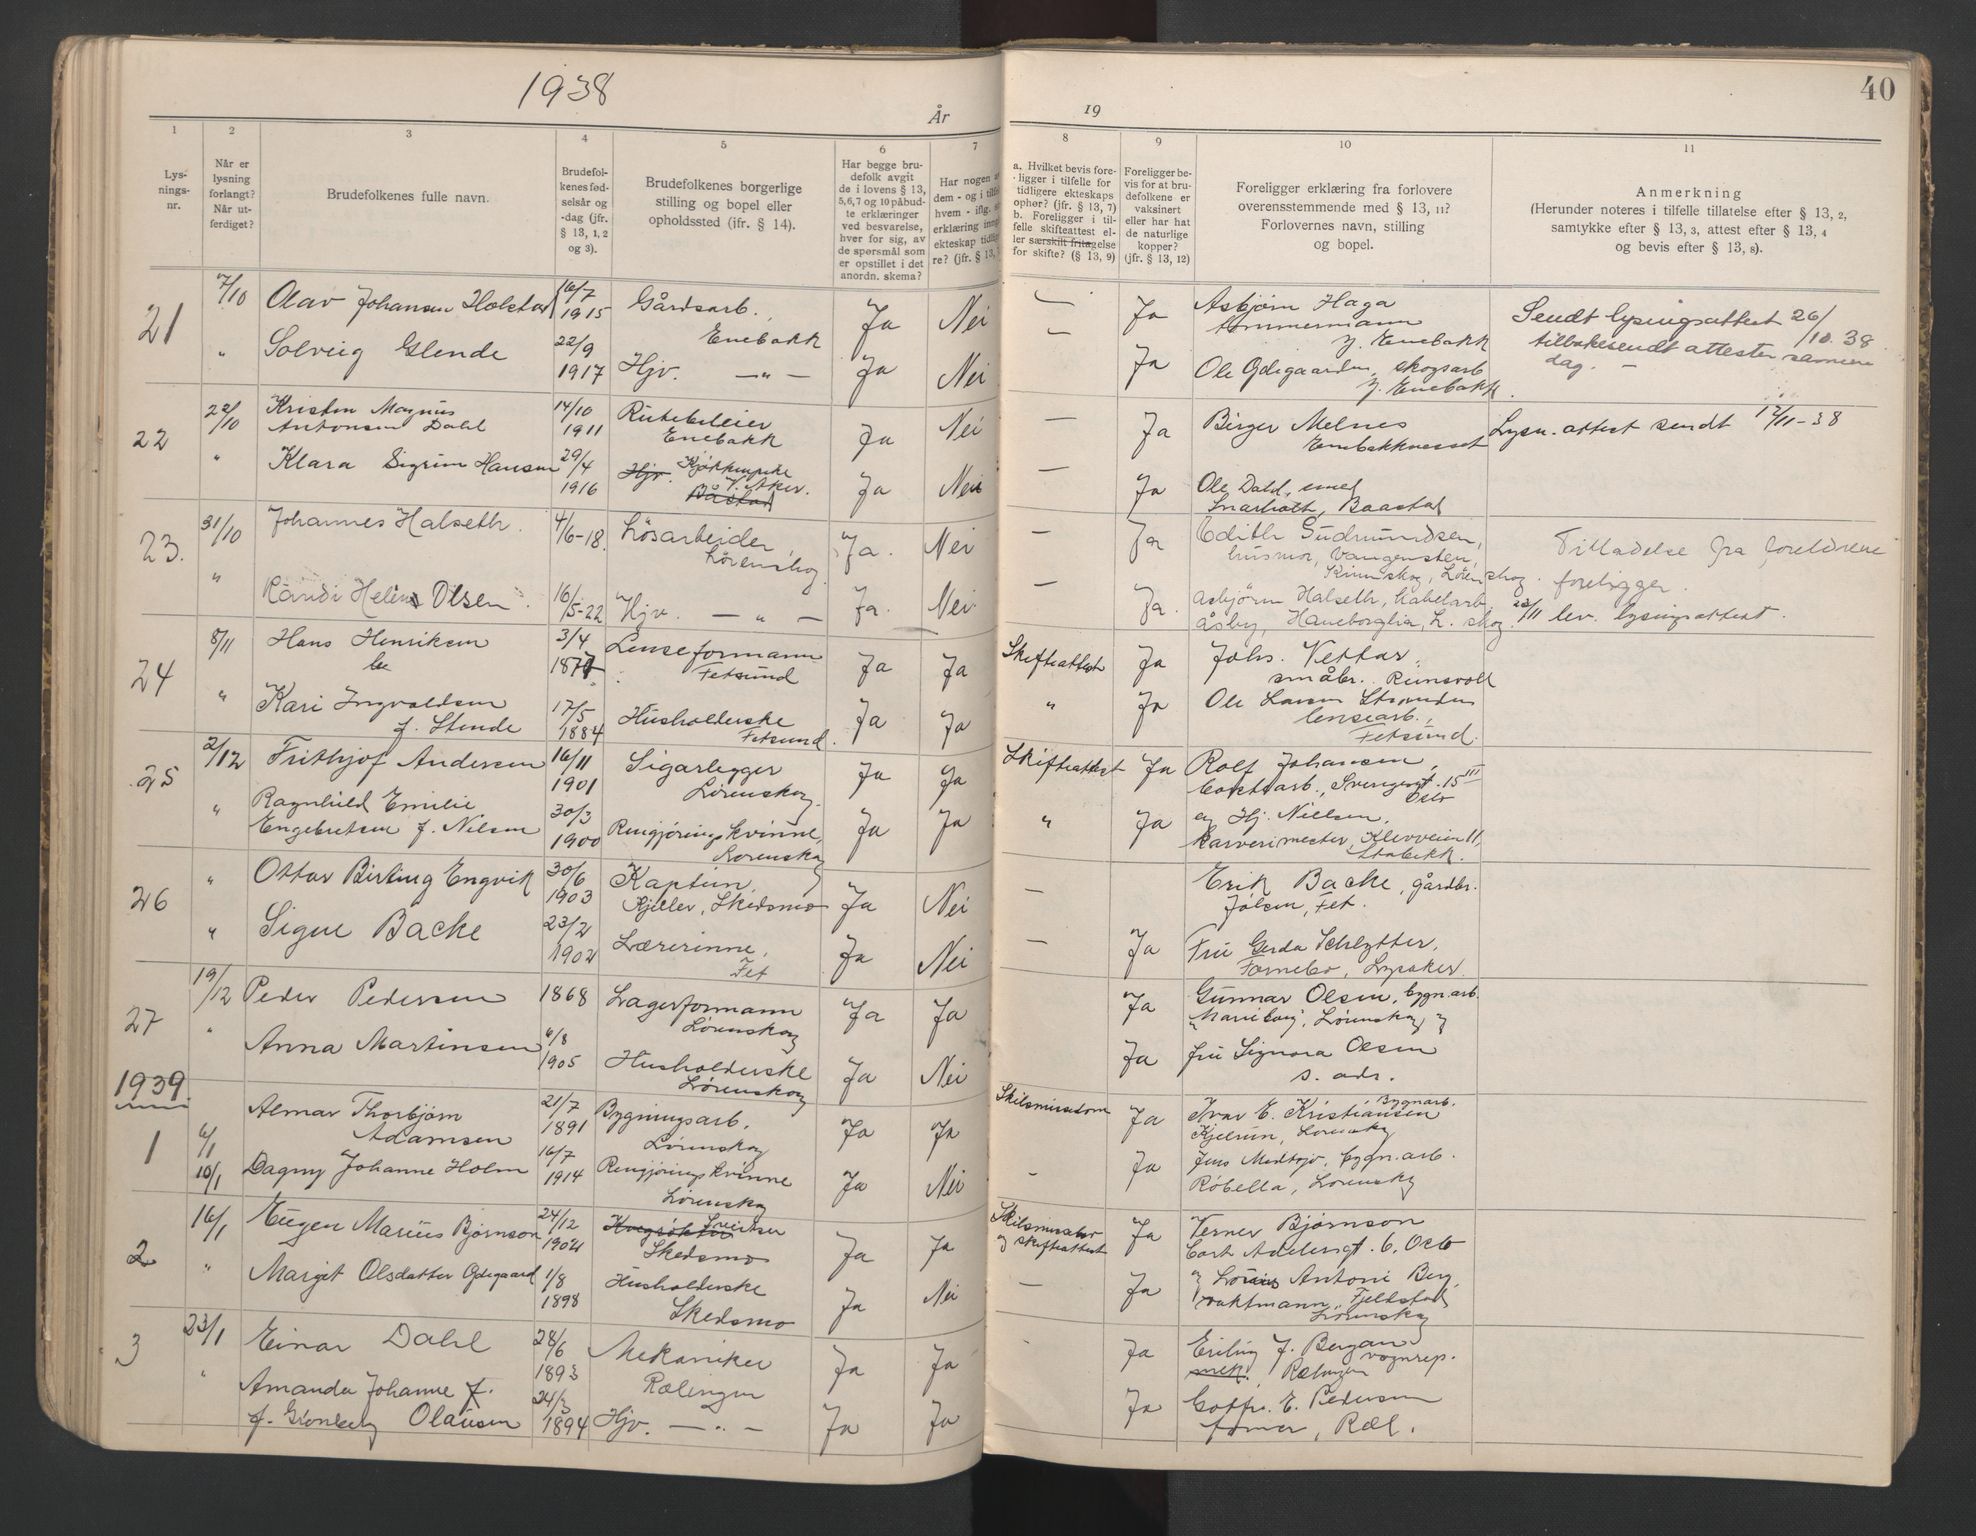 1938
40
År
19
1
2
3
4
5
6
7
8
9
10
11
Lys-
nings-
nr.
Når er
lysning
forlangt?
Når ut-
ferdiget?
Brudefolkenes fulle navn.
Brudefol-
kenes fød-
selsår og
-dag (jfr.
§ 13, 1, 2
og 3).
Brudefolkenes borgerlige
stilling og bopel eller
opholdssted (jfr. § 14).
Har begge bru-
defolk avgit
de i lovens § 13,
5, 6, 7 og 10 påbud-
te erklæringer
ved besvarelse,
hver for sig, av
de spørsmål som
er opstillet i det
anordn. skema?
Har nogen a
dem - og i tilf
hvem - iflg.
erklæring inng
ekteskap tidlig
re? (jfr. § 13,
a. Hvilket bevis fore-
ligger i tilfelle for
tidligere ekteskaps
ophør? (jfr. § 13, 7)
b. Foreligger i til-
felle skifteattest el-
ler særskilt fritagelse
for skifte? (§ 13, 9)
Foreligger be-
vis for at bru-
defolkene er
vaksinert
eller har hat
de naturlige
kopper?
(jfr. § 13, 12)
Foreligger erklæring fra forlovere
overensstemmende med § 13, 11?
Forlovernes navn, stilling
og bopel.
Anmerkning
(Herunder noteres i tilfelle tillatelse efter § 13, 2,
samtykke efter § 13, 3, attest efter § 13, 4
og bevis efter § 13, 8).
21 7/10 Olav Johansen Holstad 16/7 1915 Gårdsarb., Enebakk Ja Nei — Ja Asbjørn Haga
tømmermann
y. Enebakk
Sendt lysingsattest 26/10 38
tilbakesendt attester samme
dag. —
" Solveig Glende 22/9 1917 Hjv. —"— Ja Nei — Ja Ole Ødegaarden, skogsarb
y. Enebakk.
22 22/10 Kristen Magnus
Antonsen Dahl 14/10 1911 Rutebileier
Enebakk Ja Nei — Ja Birger Melnes
Enebakkneset
Lysn. attest sendt 12/11-38
" Klara Sigrun Hansen 29/4 1916 Hjv. Kjøkkenpike
V. Aker.
Båstad Ja Nei — Ja Ole Dahl, smed
Snarholt, Baastad
23. 31/10 Johannes Halseth. 4/6-18. Løsarbeider,
Lørenskog Ja. Nei — Ja Edith Gudmundsen,
husmor, Vangensten,
Kinnskog, Lørenskog.
Tilladelse fra foreldrene
foreligger.
" Randi Helene Olsen. 16/5-22 Hjv. —"— Ja. Nei — Ja. Asbjørn Halseth, kabelarb,
Åsby, Haneborglia, L. skog.
23/11 lev. lysingsattest.
24 8/11 Hans Henriksen
3/4 1877 Lenseformann
Fetsund Ja Ja Skifteattest Ja Johs. Vettar,
småbr. Rensvoll
" Kari Ingvaldsen
f. Stende 17/5 1884 Husholderske
Fetsund. Ja Ja " Ja Ole Larsen Stranden
lensearb.,
Fetsund.
25 2/12 Frithjof Andersen 16/11 1901 Sigarlegger
Lørenskog. Ja Ja Skifteattest Ja Rolf Johansen,
Sverresgt. 15 III
Oslo
" Ragnhild Emilie
Engebretsen f. Nilsen 30/3 1900 Rengjøringskvinne,
Lørenskog Ja Ja " Ja og Hj. Nielsen,
garverimester, Kleivveien 11,
Stabekk.
26 " Ottar Birting Engvik 30/6 1903 Kaptein,
Kjeller, Skedsmo Ja Nei — Erik Backe, gårdbr.
Jølsen, Fet.
" Signe Backe 23/2 1902 Lærerinne,
Fet Ja Nei — Ja Fru Gerda Schlytter,
Fornebo, Lysaker.
27 19/12 Peder Pedersen 1868 Lagerformann
Lørenskog Ja Ja Ja Gunnar Olsen, bygn.arb.
"Marieborg", Lørenskog og
" Anna Martinsen 6/8 1905 Husholderske
Lørenskog Ja Nei Ja fru Signora Olsen
s. adr.
1939
1 6/1 Almar Thorbjørn
Adamsen 21/7 1891 Bygningsarb.
Lørenskog Ja Ja Skilsmissedom Ja Ivar E. Kristiansen
Bygnarb.
Kjelrun, Lørenskog
10/1 Dagny Johanne Holm 16/7 1914 Rengjøringskvinne
Lørenskog Ja Nei - Ja Jens Medtsjø, bygn.arb.
Røbella, Lørenskog
2 16/1 Eugen Marius Bjørnson 24/12 1902 Sveitser
Skedsmo Ja Ja
og skifteattest Ja Verner Bjørnson
Cort Adelersgt. 6, Oslo
" Margit Olsdatter Ødegaard 1/8 1898 Husholderske
Skedsmo Ja Nei — Ja og Louis Antoni Berg,
vaktmann, Fjellstad
Lørenskog
3 23/1 Einar Dahl 28/6 1893 Mekaniker
Rælingen Ja Ja Ja Erling J. Bergan
mek. vognrep.
Rælingen
" Amanda Johanne f.
f. Grønberg Olaussen 24/3 1894 Hjv. —"— Ja Ja Ja Gotfr. E. Pedersen
former, Ræl.